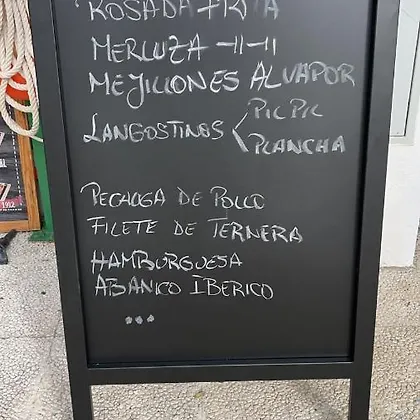 ROSADA FRITA
MERLUZA -11-11
MEJILLONES AL VAPOR
LANGOSTINOS < PIL PIL
PLANCHA
PECHOGA DE POLLO
FILETE DE TERNERA
HAMBURGUESA
ABANICO IBERICO
...
1912